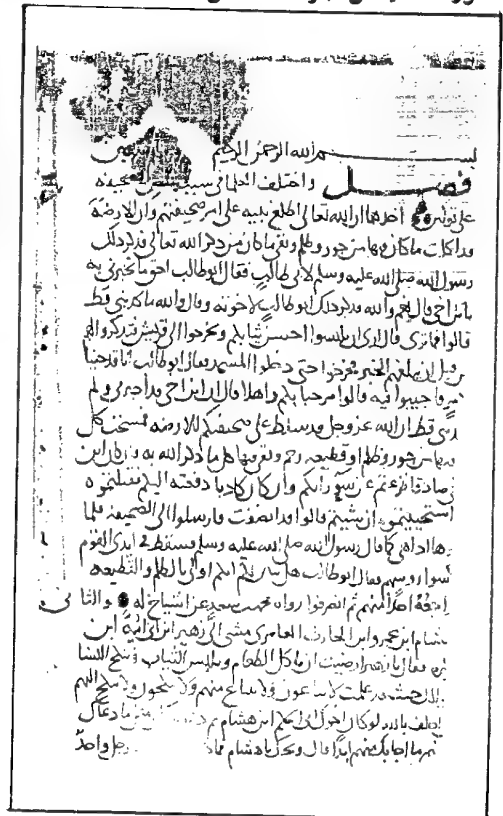 بسم الله الرحمن الرحيم
فصل واختلف العلماء في سبب نقض الصحيفه
على قولين احدهما ان الله تعالى اطلع نبيه على امر صحيفتهم وان الارضة
قد اكلت ما كان فيها من جور وظلم وبقي ما كان من ذكر الله تعالى فذكر ذلك
رسول الله صلى الله عليه وسلم لابي طالب فقال ابو طالب احق ما تخبرني به
يا بن اخي قال نعم والله فذكر ذلك ابو طالب لاخوته وقال والله ما كذبني قط
قالوا فما ترى قال ارى ان تلبسوا احسن ثيابكم وتخرجوا الى قريش فتذكروا لهم
قبل ان يبلغهم الخبر فخرجوا حتى دخلوا المسجد فقال ابو طالب انا قد جينا
فاجيبوا فيه قالوا مرحبا بكم واهلا قال ان ابن اخي قد اخبرني ولم
قط ان الله عز وجل قد سلط على صحيفتكم الارضه فمسخت كل
من جور وظلم او قطيعه رحم وبقي فيها كل ما ذكر الله به فان كان ابن
صادقا نزعتم عن سوء رايكم وان كان كاذبا دفعته اليكم فقتلتموه
استحييتموه ان شيتم قالوا قد انصفت فارسلوا الى الصحيفه فلما
اذا هي كما قال رسول الله صلى الله عليه وسلم فسقط في ايدي القوم
روسهم فقال ابو طالب هل تبين لكم انكم اولى بالظلم والقطيعه
احد منهم ثم انصرفوا رواه محمد بن سعد عن اشياخ له والثاني
هشام ابن عمرو ابن الحارث العامري مشى الى زهير ابن ابي امية ابن
فقال يا زهير ارضيت ان تاكل الطعام وتلبس الثياب وتنكح النسا
حيث قد علمت لا يباعون ولا يبتاع منهم ولا ينكحون ولا ينكح اليهم
احلف بالله لو كان اخوال ابي الحكم ابن هشام ثم دعوته الى مثل ما دعاك
ما اجابك منهم ابدا قال ويحك يا هشام فماذا رجل واحد